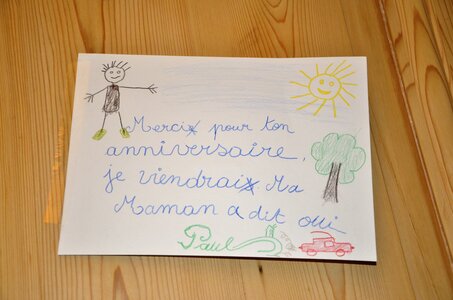 Merci pour ton
anniversaire,
je viendrai Ma
Maman a dit oui
Paul